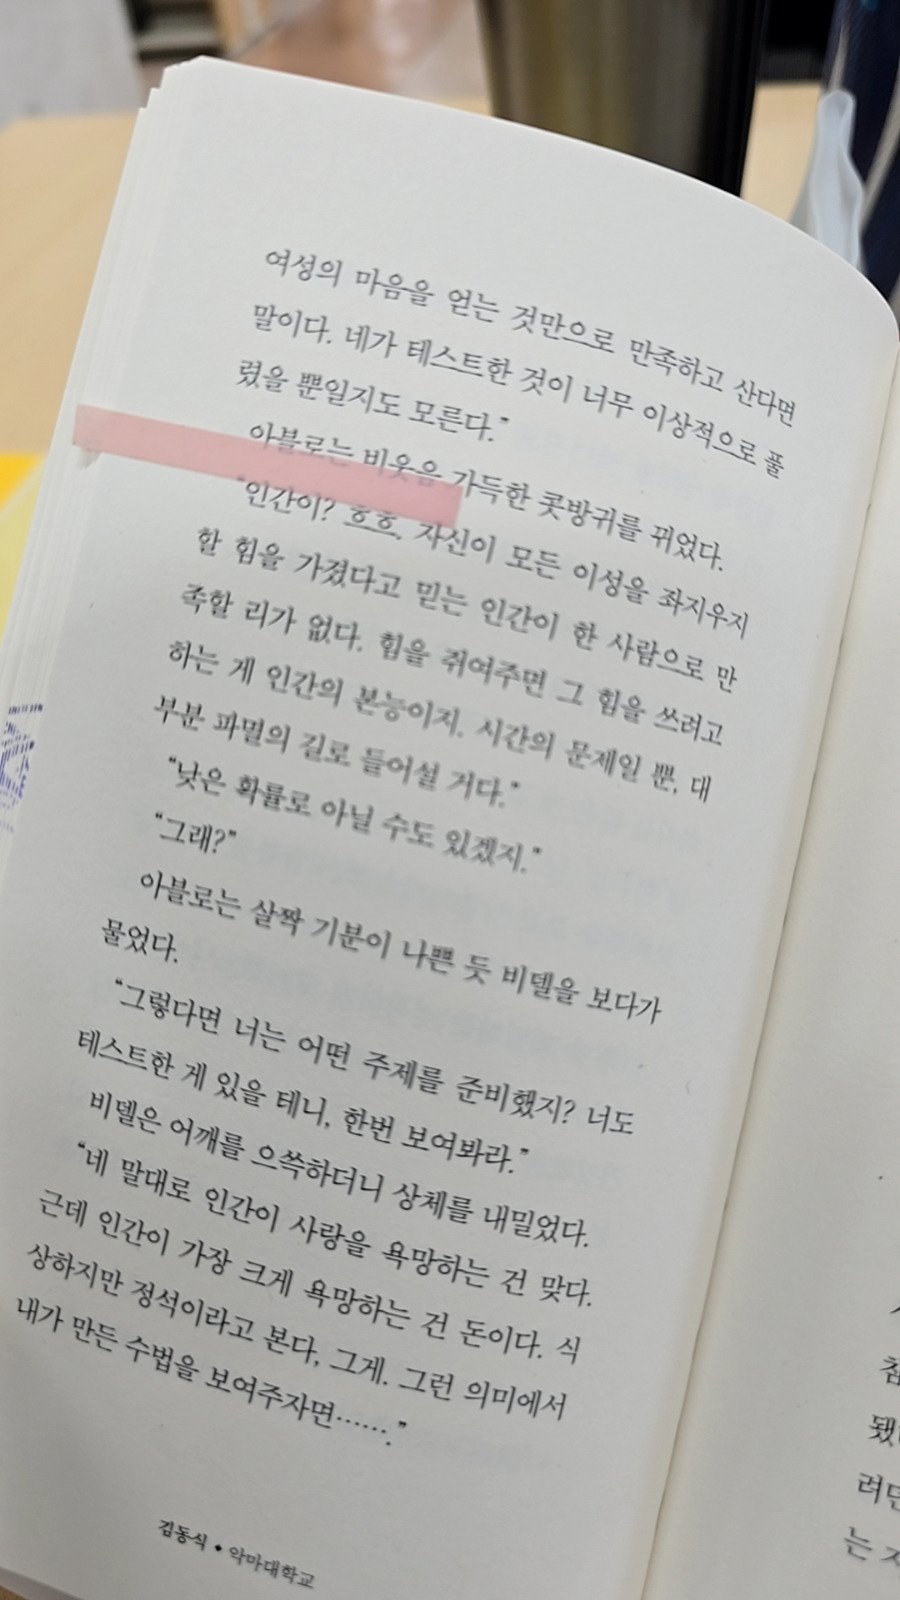 여성의 마음을 얻는 것만으로 만족하고 산다면
말이다. 네가 테스트한 것이 너무 이상적으로 풀
렸을 뿐일지도 모른다.”
아블로는 비웃음 가득한 콧방귀를 뀌었다.
“인간이? 흐흐. 자신이 모든 이성을 좌지우지
할 힘을 가졌다고 믿는 인간이 한 사람으로 만
족할 리가 없다. 힘을 쥐여주면 그 힘을 쓰려고
하는 게 인간의 본능이지. 시간의 문제일 뿐, 대
부분 파멸의 길로 들어설 거다.”
“낮은 확률로 아닐 수도 있겠지.”
“그래?”
아블로는 살짝 기분이 나쁜 듯 비델을 보다가
물었다.
“그렇다면 너는 어떤 주제를 준비했지? 너도
테스트한 게 있을 테니, 한번 보여봐라.”
비델은 어깨를 으쓱하더니 상체를 내밀었다.
“네 말대로 인간이 사랑을 욕망하는 건 맞다.
근데 인간이 가장 크게 욕망하는 건 돈이다. 식
상하지만 정석이라고 본다, 그게. 그런 의미에서
내가 만든 수법을 보여주자면…….”
김동식 • 악마대학교